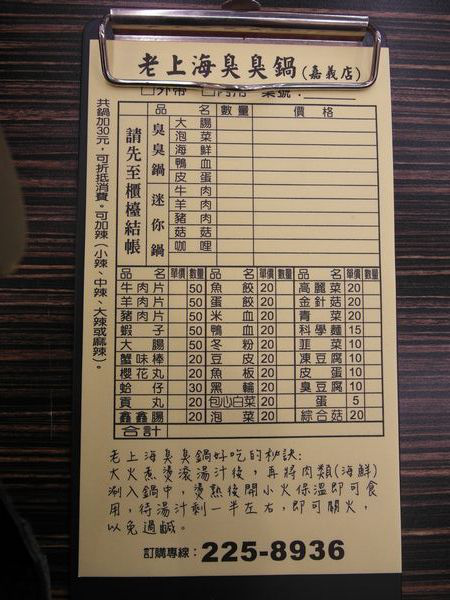 老上海臭臭鍋(嘉義店)
□外帶 □內用 桌號:
共鍋加30元,可折抵消費。可加辣(小辣、中辣、大辣或麻辣)。
請先至櫃檯結帳
品 名 數量 價格
臭臭鍋
大腸
泡菜
海鮮
鴨血
皮蛋
迷你鍋
牛肉
羊肉
豬肉
菇菇
咖哩
品 名 單價 數量 品 名 單價 數量 品 名 單價 數量
牛肉片 50 魚餃 20 高麗菜 20
羊肉片 50 蛋餃 20 金針菇 20
豬肉片 50 米血 20 青菜 20
蝦子 50 鴨血 20 科學麵 15
大腸 50 冬粉 20 韮菜 10
蟹味棒 20 豆皮 20 凍豆腐 10
櫻花丸 20 魚板 20 皮蛋 10
蛤仔 30 黑輪 20 臭豆腐 10
貢丸 20 包心白菜 20 蛋 5
鑫鑫腸 20 泡菜 20 綜合菇 20
合計
老上海臭臭鍋好吃的秘訣:
大火煮燙滾湯汁後,再將肉類(海鮮)
涮入鍋中,燙熟後開小火保溫即可食
用,待湯汁剩一半左右,即可關火,
以免過鹹。
訂購專線:225-8936